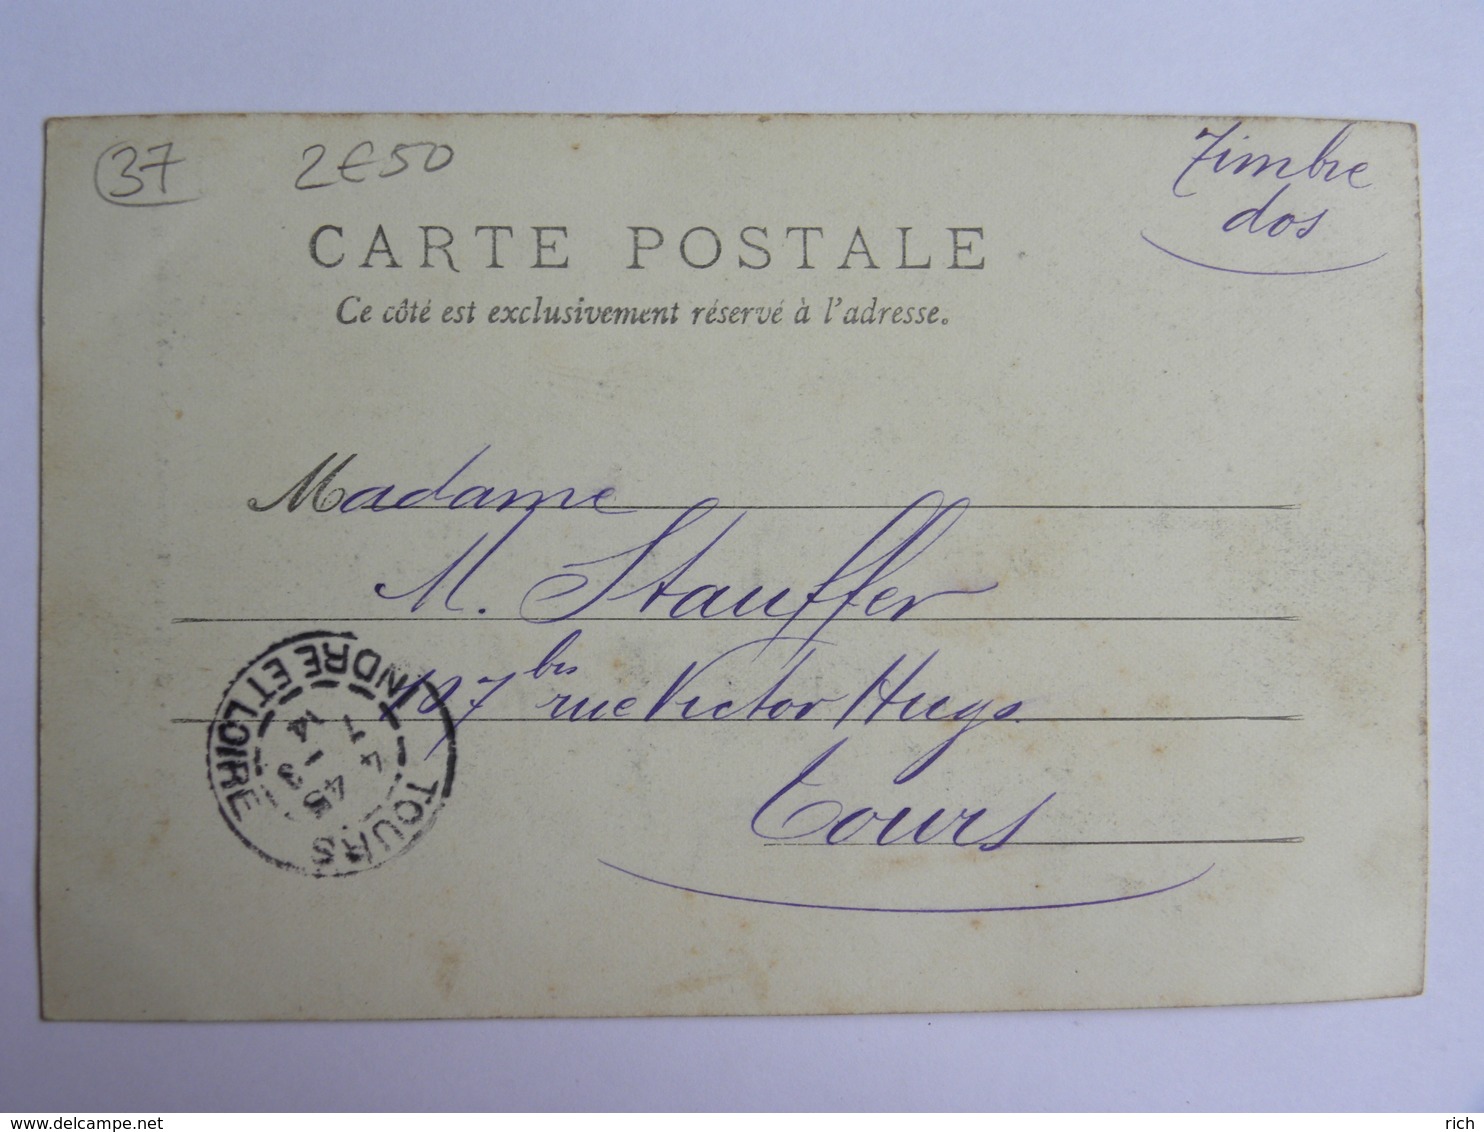 37 2€50
Timbre
dos
CARTE POSTALE
Ce côté est exclusivement réservé à l'adresse.
Madame
M. Stauffer
107 bis rue Victor Hugo
Tours
TOURS
INDRE ET LOIRE
www.delcampe.net
rich